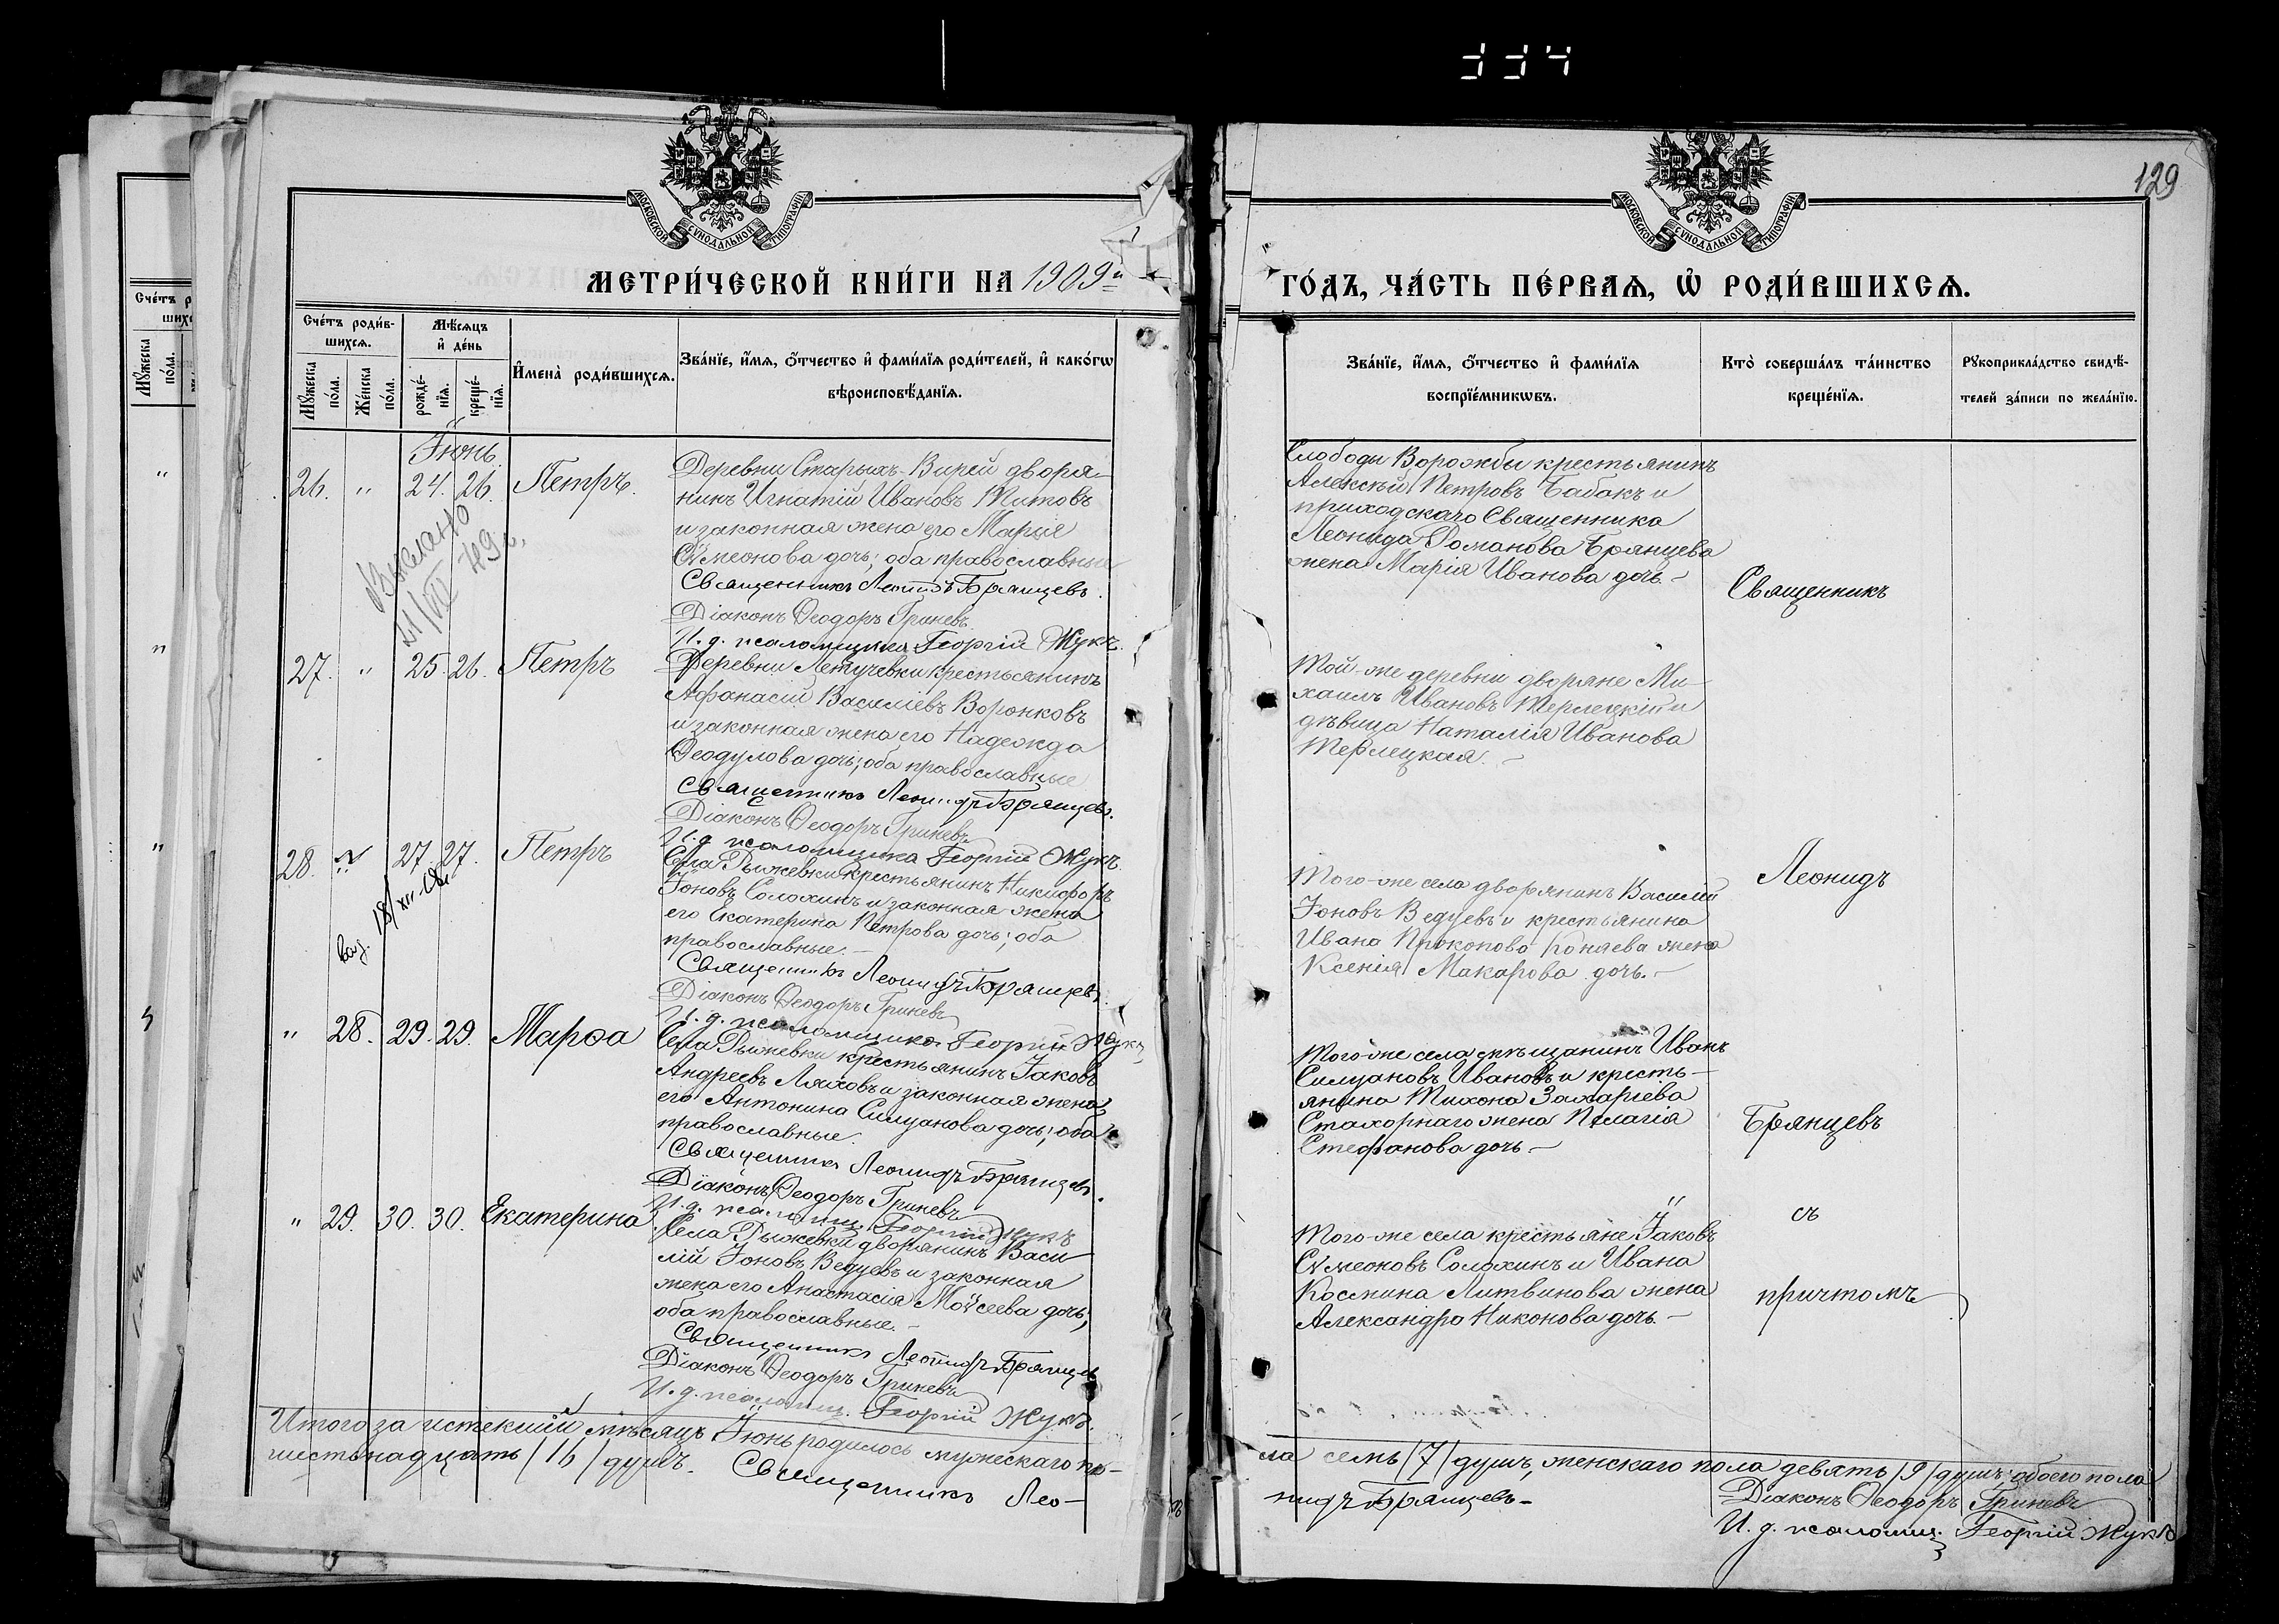 334
129
МОСКОВСКОЙ СУНОДАЛЬНОЙ ТИПОГРАФІИ
МОСКОВСКОЙ СУНОДАЛЬНОЙ ТИПОГРАФІИ
МЕТРИ́ЧЕСКОЙ КНИ́ГИ НА 1909й
ГО́ДЪ, ЧА́СТЬ ПЕ́РВАѦ, Ѽ РОДИ́ВШИХСѦ.
Сче́тъ роди́в-
шихсѧ.
Мꙋ́жеска по́ла.
Же́нска по́ла.
Мѣ́сѧцъ
и҆ де́нь
рожде́-
нїѧ.
креще́-
нїѧ.
И҆мена̀ роди́вшихсѧ.
Зва́нїе, и҆́мѧ, ѻ҆́тчество и҆ фами́лїѧ роди́телей, и҆ како́гѡ
вѣроисповѣ́данїѧ.
Зва́нїе, и҆́мѧ, ѻ҆́тчество и҆ фами́лїѧ
воспрїе́мникѡвъ.
Кто̀ соверша́лъ та́инство
креще́нїѧ.
Рꙋкоприкла́дство свидѣ́-
телей за́писи по жела́нїю.
Іюнь.
26. " 24. 26. Петръ.
Деревни Старыхъ-Вирей дворя-
нинъ Игнатій Ивановъ Титовъ
и законная жена его Марія
Сѵмеонова дочь; оба православные
Священникъ Леонидъ Брянцевъ.
Діаконъ Ѳеодоръ Гриневъ
И. д. псаломщика Георгій Жукъ.
Слободы Ворожбы крестьянинъ
Алексѣй Петровъ Бабакъ и
приходскаго Священника
Леонида Романова Брянцева
жена Марія Иванова дочь.-
27. " 25. 26. Петръ
Деревни Летучевки крестьянинъ
Афанасій Василіевъ Воронковъ
и законная жена его Надежда
Ѳеодулова дочь; оба православные
Священникъ Леонидъ Брянцевъ.
Діаконъ Ѳеодоръ Гриневъ
И. д. псаломщика Георгій Жукъ.
Той-же деревни дворяне Ми-
хаилъ Ивановъ Терлецкій и
дѣвица Наталія Иванова
Терлецкая.-
28. " 27. 27. Петръ
Села Рыжевки крестьянинъ Никифоръ
Іоновъ Солохинъ и законная жена
его Екатерина Петрова дочь; оба
православные.-
Священникъ Леонидъ Брянцевъ.
Діаконъ Ѳеодоръ Гриневъ
И. д. псаломщика Георгій Жукъ
Того-же села дворянинъ Василій
Іоновъ Ведуевъ и крестьянина
Ивана Прокопова Коняева жена
Ксенія Макарова дочь.-
" 28. 29. 29. Марѳа
Села Рыжевки крестьянинъ Іаковъ
Андреевъ Ляховъ и законная жена
его Антонина Силуанова дочь; оба
православные.
Священникъ Леонидъ Брянцевъ.
Діаконъ Ѳеодоръ Гриневъ
И. д. псаломщ. Георгій Жукъ
Того-же села мѣщанинъ Иванъ
Силуановъ Ивановъ и кресть-
янина Тихона Захаріева
Стахорнаго жена Пелагія
Стефанова дочь-
" 29. 30. 30. Екатерина
Села Рыжевки дворянинъ Васи-
лій Іоновъ Ведуевъ и законная
жена его Анастасія Моѵсеева дочь;
оба православные.-
Священникъ Леонидъ Брянцевъ
Діаконъ Ѳеодоръ Гриневъ
И. д. псаломщ. Георгій Жукъ.
Того-же села крестьяне Іаковъ
Сѵмеоновъ Солохинъ и Ивана
Космина Литвинова жена
Александра Никонова дочь.-
Священникъ
Леонидъ
Брянцевъ
съ
причтомъ
Итого за истекшій мѣсяцъ Іюнь родилось мужескаго по-
ла семь /7/ душъ, женскаго пола девять /9/ душъ; обоего пола
шестьнадцать /16/ душъ. Священникъ Лео-
нидъ Брянцевъ-
Діаконъ Ѳеодоръ Гриневъ
И. д. псаломщ. Георгій Жукъ